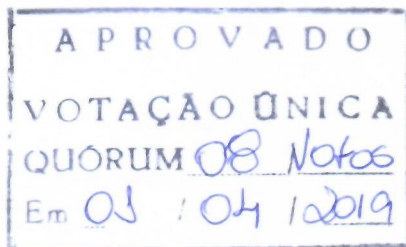 APROVADO
VOTAÇÃO ÚNICA
QUÓRUM 08 Votos
Em 01 / 04 / 2019